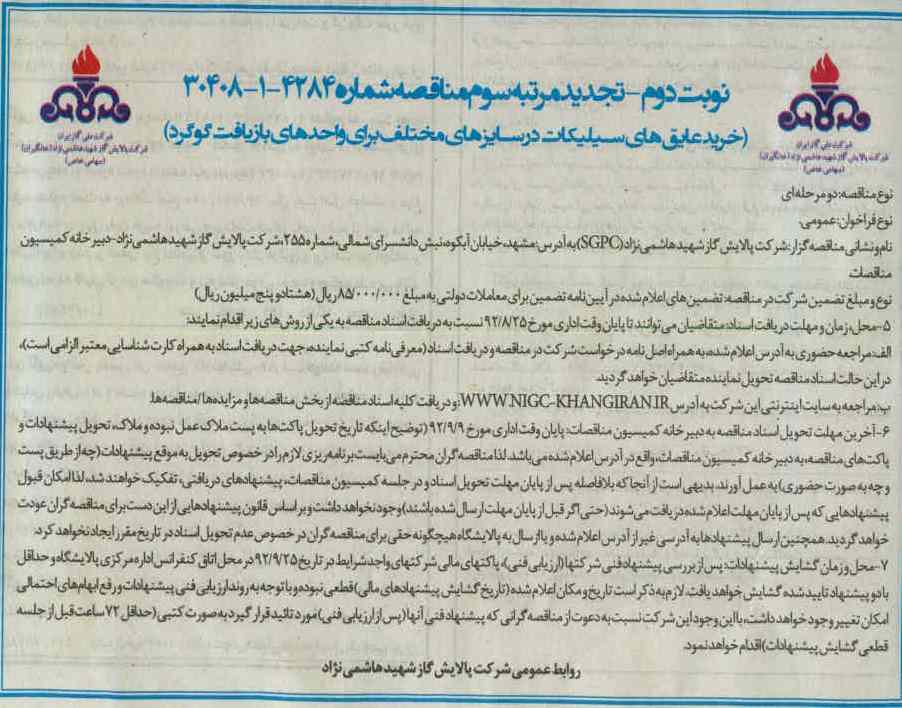 نوبت دوم - تجدید مرتبه سوم مناقصه شماره ۴۲۸۴-۱-۳۰۴۰۸
(خرید عایق های سیلیکات در سایزهای مختلف برای واحدهای بازیافت گوگرد)
شرکت ملی گاز ایران
شرکت پالایش گاز شهید هاشمی نژاد (خانگیران)
(سهامی خاص)
شرکت ملی گاز ایران
شرکت پالایش گاز شهید هاشمی نژاد (خانگیران)
(سهامی خاص)
نوع مناقصه: دو مرحله ای
نوع فراخوان: عمومی.
نام و نشانی مناقصه گزار: شرکت پالایش گاز شهید هاشمی نژاد (SGPC) به آدرس: مشهد، خیابان آبکوه، نبش دانشسرای شمالی، شماره ۲۵۵، شرکت پالایش گاز شهید هاشمی نژاد-دبیرخانه کمیسیون
مناقصات
نوع و مبلغ تضمین شرکت در مناقصه: تضمین های اعلام شده در آیین نامه تضمین برای معاملات دولتی به مبلغ ۸۵/۰۰۰/۰۰۰ ریال (هشتاد و پنج میلیون ریال)
۵-محل، زمان و مهلت دریافت اسناد: متقاضیان می توانند تا پایان وقت اداری مورخ ۹۲/۸/۲۵ نسبت به دریافت اسناد مناقصه به یکی از روش های زیر اقدام نمایند:
الف: مراجعه حضوری به آدرس اعلام شده، به همراه اصل نامه درخواست شرکت در مناقصه و دریافت اسناد (معرفی نامه کتبی نماینده، جهت دریافت اسناد به همراه کارت شناسایی معتبر الزامی است)،
در این حالت اسناد مناقصه تحویل نماینده متقاضیان خواهد گردید.
ب: مراجعه به سایت اینترنتی این شرکت به آدرس WWW.NIGC-KHANGIRAN.IR و دریافت کلیه اسناد مناقصه از بخش مناقصه ها و مزایده ها/مناقصه ها.
۶-آخرین مهلت تحویل اسناد مناقصه به دبیرخانه کمیسیون مناقصات: پایان وقت اداری مورخ ۹۲/۹/۹ (توضیح اینکه تاریخ تحویل پاکت ها به پست ملاک عمل نبوده و ملاک، تحویل پیشنهادات و
پاکت های مناقصه، به دبیرخانه کمیسیون مناقصات، واقع در آدرس اعلام شده می باشد. لذا مناقصه گران محترم می بایست برنامه ریزی لازم را در خصوص تحویل به موقع پیشنهادات (چه از طریق پست
و چه به صورت حضوری) به عمل آورند. بدیهی است از آنجا که بلافاصله پس از پایان مهلت تحویل اسناد و در جلسه کمیسیون مناقصات، پیشنهادهای دریافتی، تفکیک خواهند شد، لذا امکان قبول
پیشنهادهایی که پس از پایان مهلت اعلام شده دریافت می شوند (حتی اگر قبل از پایان مهلت ارسال شده باشند) وجود نخواهد داشت و بر اساس قانون پیشنهادهایی از این دست برای مناقصه گران عودت
خواهد گردید. همچنین ارسال پیشنهادها به آدرسی غیر از آدرس اعلام شده و یا ارسال به پالایشگاه هیچگونه حقی برای مناقصه گران در خصوص عدم تحویل اسناد در تاریخ مقرر ایجاد نخواهد کرد.
۷-محل و زمان گشایش پیشنهادات: پس از بررسی پیشنهاد فنی شرکتها (ارزیابی فنی)، پاکتهای مالی شرکتهای واجد شرایط در تاریخ ۹۲/۹/۲۵ در محل اتاق کنفرانس اداره مرکزی پالایشگاه و حداقل
با دو پیشنهاد تایید شده گشایش خواهد یافت. لازم به ذکر است تاریخ و مکان اعلام شده (تاریخ گشایش پیشنهادهای مالی) قطعی نبوده و با توجه به روند ارزیابی فنی پیشنهادات و رفع ابهام های احتمالی
امکان تغییر وجود خواهد داشت، با این وجود این شرکت نسبت به دعوت از مناقصه گرانی که پیشنهاد فنی آنها (پس از ارزیابی فنی) مورد تائید قرار گیرد به صورت کتبی (حداقل ۷۲ ساعت قبل از جلسه
قطعی گشایش پیشنهادات) اقدام خواهد نمود.
روابط عمومی شرکت پالایش گاز شهید هاشمی نژاد